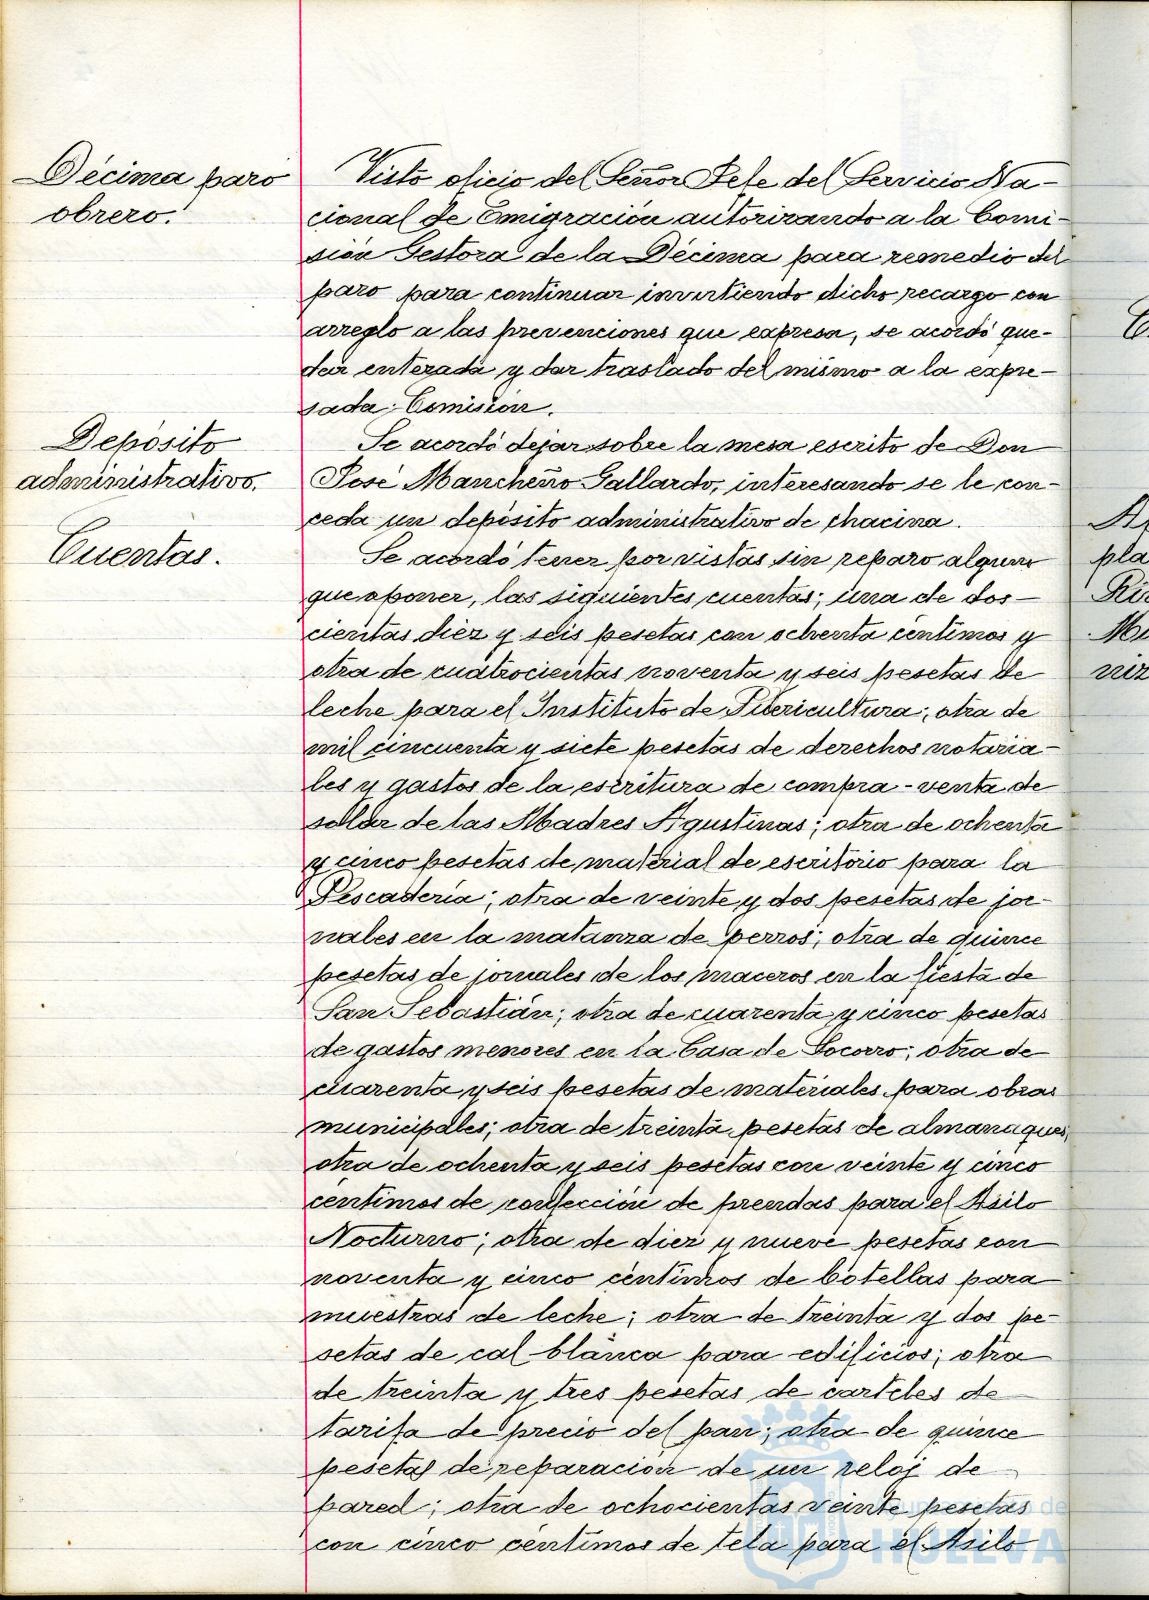 Décima paro
obrero.
Visto oficio del Señor Jefe del Servicio Na-
cional de Emigración autorizando a la Comi-
sión Gestora de la Décima para remedio del
paro para continuar invirtiendo dicho recargo con
arreglo a las prevenciones que expresa, se acordó que-
dar enterada y dar traslado del mismo a la expre-
sada Comisión.
Depósito
administrativo.
Se acordó dejar sobre la mesa escrito de Don
José Mancheño Gallardo, interesando se le con-
ceda un depósito administrativo de chacina.
Cuentas.
Se acordó tener por vistas sin reparo alguno
que oponer, las siguientes cuentas; una de dos-
cientas diez y seis pesetas con ochenta céntimos y
otra de cuatrocientas noventa y seis pesetas de
leche para el Instituto de Puericultura; otra de
mil cincuenta y siete pesetas de derechos notaria-
les y gastos de la escritura de compra-venta de
solar de las Madres Agustinas; otra de ochenta
y cinco pesetas de material de escritorio para la
Pescadería; otra de veinte y dos pesetas de jor-
nales en la matanza de perros; otra de quince
pesetas de jornales de los maceros en la fiesta de
San Sebastián; otra de cuarenta y cinco pesetas
de gastos menores en la Casa de Socorro; otra de
cuarenta y seis pesetas de materiales para obras
municipales; otra de treinta pesetas de almanaques;
otra de ochenta y seis pesetas con veinte y cinco
céntimos de confección de prendas para el Asilo
Nocturno; otra de diez y nueve pesetas con
noventa y cinco céntimos de botellas para
muestras de leche; otra de treinta y dos pe-
setas de cal blanca para edificios; otra
de treinta y tres pesetas de carteles de
tarifa de precio del pan; otra de quince
pesetas de reparación de un reloj de
pared; otra de ochocientas veinte pesetas
con cinco céntimos de tela para el Asilo
HUELVA